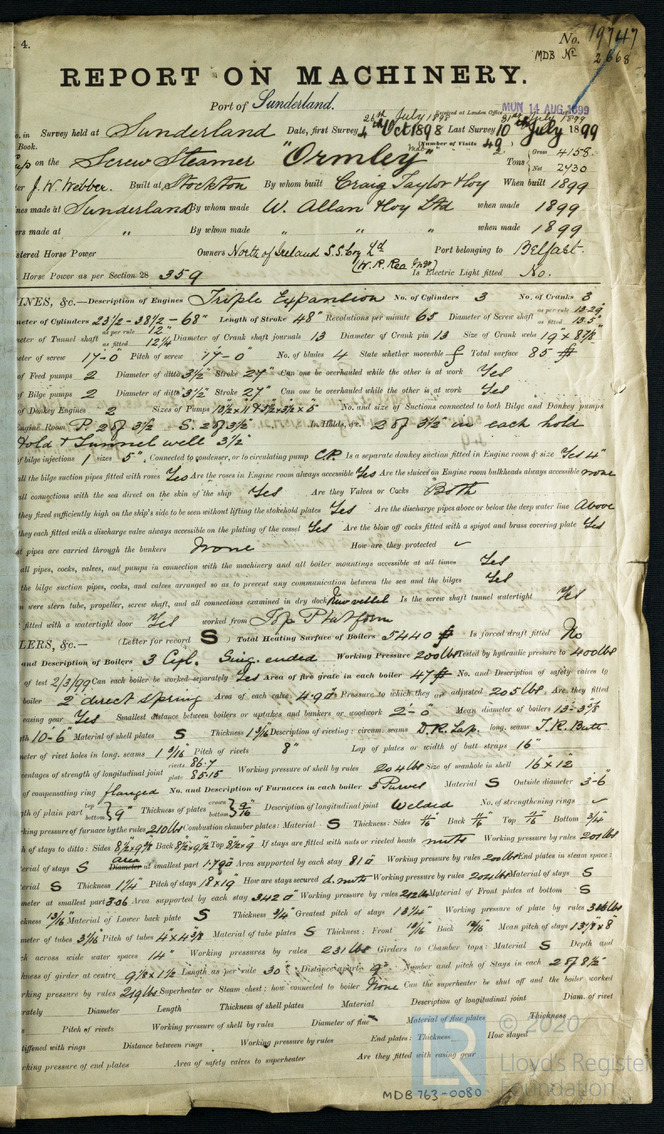 4.
No. 19747
MDB No 2668
REPORT ON MACHINERY.
Port of Sunderland.
Received at London Office MON 14 AUG 1899
No. in Survey held at Sunderland Date, first Survey 4th Oct 1898 Last Survey 10th July 1899
Book.
(Number of Visits 49)
on the Screw Steamer "Ormley" Tons Gross 4158. Net 2730
J. W. Webber. Built at Stockton By whom built Craig Taylor & Coy When built 1899
ines made at Sunderland By whom made W. Allan & Coy Ltd when made 1899
ers made at " By whom made " " " when made 1899
stered Horse Power Owners North of Ireland S.S. Coy Ld (W. R. Rea Mgr) Port belonging to Belfast.
Horse Power as per Section 28 359 Is Electric Light fitted No.
INES, &c.—Description of Engines Triple Expansion No. of Cylinders 3 No. of Cranks 3
meter of Cylinders 23½ - 38½ - 68" Length of Stroke 48" Revolutions per minute 65 Diameter of Screw shaft as per rule 13.29 as fitted 13.5"
meter of Tunnel shaft as per rule 12" as fitted 12¼ Diameter of Crank shaft journals 13 Diameter of Crank pin 13 Size of Crank webs 19 x 8⅜"
meter of screw 17-0 Pitch of screw 17-0 No. of blades 4 State whether moveable Total surface 85 #
of Feed pumps 2 Diameter of ditto 3½" Stroke 27" Can one be overhauled while the other is at work Yes
of Bilge pumps 2 Diameter of ditto 3½" Stroke 27" Can one be overhauled while the other is at work Yes
of Donkey Engines 2 Sizes of Pumps No. and size of Suctions connected to both Bilge and Donkey pumps
Engine Room P. 2 of 3½ S. 2 of 3½" In Holds, &c. 2 of 3½" in each hold
hold & Tunnel well 3½"
of bilge injections 1 sizes 5" Connected to condenser, or to circulating pump C.P. Is a separate donkey suction fitted in Engine room & size Yes 4"
all the bilge suction pipes fitted with roses Yes Are the roses in Engine room always accessible Yes Are the sluices on Engine room bulkheads always accessible none
all connections with the sea direct on the skin of the ship Yes Are they Valves or Cocks Both
they fixed sufficiently high on the ship's side to be seen without lifting the stokehold plates Yes Are the discharge pipes above or below the deep water line Above
they each fitted with a discharge valve always accessible on the plating of the vessel Yes Are the blow off cocks fitted with a spigot and brass covering plate Yes
at pipes are carried through the bunkers None How are they protected ✓
all pipes, cocks, valves, and pumps in connection with the machinery and all boiler mountings accessible at all times Yes
the bilge suction pipes, cocks, and valves arranged so as to prevent any communication between the sea and the bilges Yes
n were stern tube, propeller, screw shaft, and all connections examined in dry dock New vessel Is the screw shaft tunnel watertight Yes
fitted with a watertight door Yes worked from Top Platform
LERS, &c.— (Letter for record S) Total Heating Surface of Boilers 5440 # Is forced draft fitted No
and Description of Boilers 3 Cyl. Sing. ended Working Pressure 200 lbs Tested by hydraulic pressure to 400 lbs
of test 2/3/99 Can each boiler be worked separately Yes Area of fire grate in each boiler 47 # No. and Description of safety valves to
boiler 2 direct spring Area of each valve 4.90" Pressure to which they are adjusted 205 lbs Are they fitted
easing gear Yes Smallest distance between boilers or uptakes and bunkers or woodwork 2'-0" Mean diameter of boilers 13-3⅝
th 10-6" Material of shell plates S Thickness 1 3/16 Description of riveting: circum. seams D.R. Lap. long. seams T.R. Butt
meter of rivet holes in long. seams 1 3/16" Pitch of rivets 8" Lap of plates or width of butt straps 16"
centages of strength of longitudinal joint rivets 86.7 plate 85.15 Working pressure of shell by rules 204 lbs Size of manhole in shell 16" x 12"
of compensating ring flanged No. and Description of Furnaces in each boiler 3 Purves Material S Outside diameter 3-6"
gth of plain part top bottom 9" Thickness of plates crown bottom 9/16 Description of longitudinal joint Welded No. of strengthening rings ✓
king pressure of furnace by the rules 210 lbs Combustion chamber plates: Material S Thickness: Sides Back Top Bottom ¾
h of stays to ditto: Sides Back Top If stays are fitted with nuts or riveted heads nuts Working pressure by rules 201 lbs
erial of stays S area at smallest part 1.79 Area supported by each stay 81 Working pressure by rules 200 lbs End plates in steam space:
erial S Thickness 1¼ Pitch of stays 18 x 19" How are stays secured d. nuts Working pressure by rules 204 lbs Material of stays S
meter at smallest part 3.06 Area supported by each stay 342 Working pressure by rules Material of Front plates at bottom S
ckness 13/16 Material of Lower back plate S Thickness ¾ Greatest pitch of stays 13¼" Working pressure of plate by rules
meter of tubes 3¼ Pitch of tubes Material of tube plates S Thickness: Front Back Mean pitch of stays
ch across wide water spaces 14" Working pressures by rules 231 lbs Girders to Chamber tops: Material S Depth and
kness of girder at centre 9½ x 1½ Length as per rule 30" Distance apart 9" Number and pitch of Stays in each 2 of 8½"
rking pressure by rules 219 lbs Superheater or Steam chest; how connected to boiler None Can the superheater be shut off and the boiler worked
rately Diameter Length Thickness of shell plates Material Description of longitudinal joint Diam. of rivet
Pitch of rivets Working pressure of shell by rules Diameter of flue Material of flue plates Thickness
stiffened with rings Distance between rings Working pressure by rules End plates: Thickness How stayed
rking pressure of end plates Area of safety valves to superheater Are they fitted with easing gear
LR
© 2020
Lloyd's Register
Foundation
MDB 763-0080